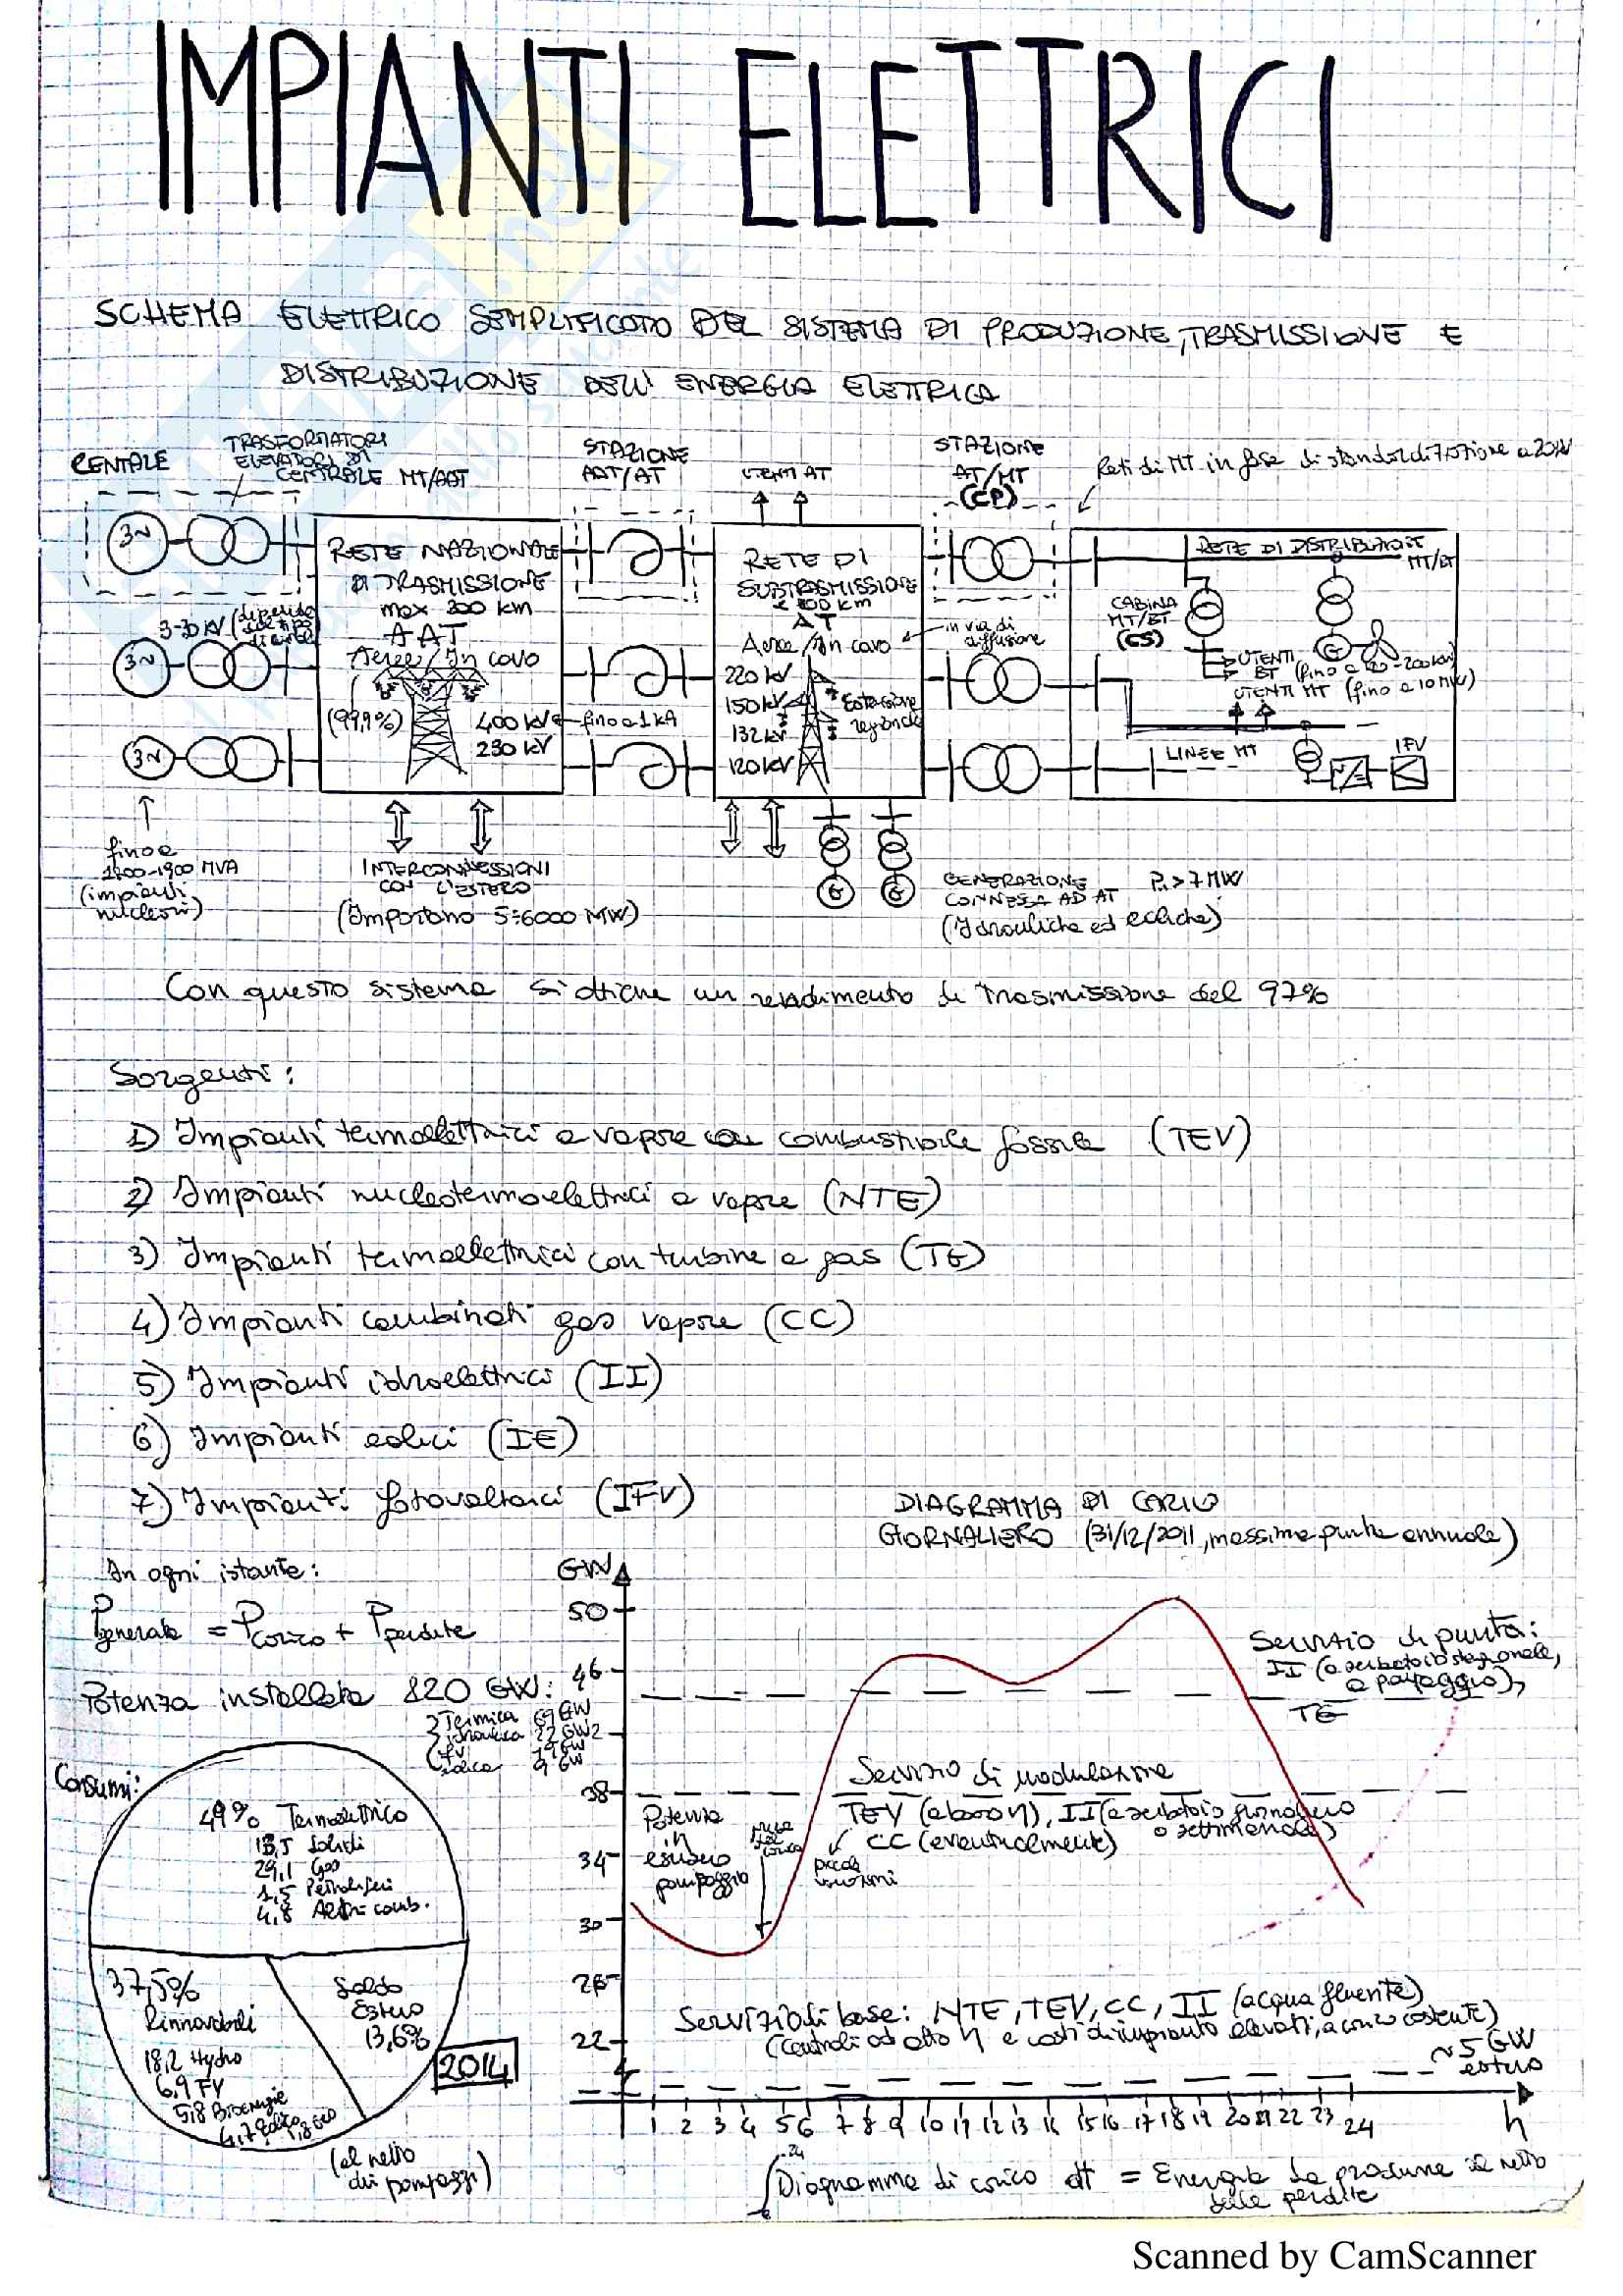 IMPIANTI ELETTRICI
SCHEMA ELETTRICO SEMPLIFICATO DEL SISTEMA DI PRODUZIONE, TRASMISSIONE E
DISTRIBUZIONE DELL'ENERGIA ELETTRICA
CENTALE
TRASFORMATORI
ELEVATORI DI
CENTRALE MT/AAT
STAZIONE
AAT/AT
UTENTI AT
STAZIONE
AT/MT
(CP)
Reti di MT in fase di standardizzazione a 20kV
3N
3-30 kV (dipende
3N
3N
RETE NAZIONALE
DI TRASMISSIONE
max 300 km
AAT
Aeree/In cavo
(99,9%)
400 kV fino a 1 kA
230 kV
RETE DI
SUBTRASMISSIONE
AT
Aeree/In cavo
in via di
diffusione
220 kV
150 kV
132 kV
120 kV
Estensione
regionale
RETE DI DISTRIBUZIONE
MT/BT
CABINA
MT/BT
(CS)
G
UTENTI
BT
UTENTI MT (fino a 10 MW)
LINEE MT
IFV
fino a
MVA
(impianti
nucleari)
INTERCONNESSIONI
CON L'ESTERO
(Importano 5÷6000 MW)
G
G
GENERAZIONE
CONNESSA AD AT
P.>7 MW
(Idrauliche ed eoliche)
Con questo sistema si ottiene un rendimento di trasmissione del 97%
Sorgenti:
1) Impianti termoelettrici a vapore con combustibile fossile (TEV)
2) Impianti nucleotermoelettrici a vapore (NTE)
3) Impianti termoelettrici con turbine a gas (TG)
4) Impianti combinati gas vapore (CC)
5) Impianti idroelettrici (II)
6) Impianti eolici (IE)
7) Impianti fotovoltaici (IFV)
DIAGRAMMA DI CARICO
GIORNALIERO (31/12/2011, massima punta annuale)
In ogni istante:
Pgenerata = Pcarico + Pperdite
Potenza installata 120 GW:
Termica 69 GW
idraulica 22 GW
FV 19 GW
eolica 9 GW
Consumi:
49% Termoelettrico
13,5 Solidi
29,1 Gas
1,5 Petroliferi
4,8 Altri comb.
37,5%
Rinnovabili
18,2 Hydro
6,9 FV
5,8 Bioenergie
4,7 Eolico 1,8 Geo
Saldo
Estero
13,6%
2014
(al netto
dei pompaggi)
GW
50
46
42
38
34
30
26
22
Servizio di punta:
II (a serbatoio stagionale,
a pompaggio),
TG
Servizio di modulazione
TEV (a basso η), II (a serbatoio giornaliero
o settimanale)
CC (eventualmente)
piccole
Potenza
in
esubero
pompaggio
Servizio di base: NTE, TEV, CC, II (acqua fluente)
(Centrali ad alto η e costi di impianto elevati, a carico costante)
~5 GW
estero
1 2 3 4 5 6 7 8 9 10 11 12 13 14 15 16 17 18 19 20 21 22 23 24
h
∫ Diagramma di carico dt = Energia da produrre al netto
24
delle perdite
Scanned by CamScanner